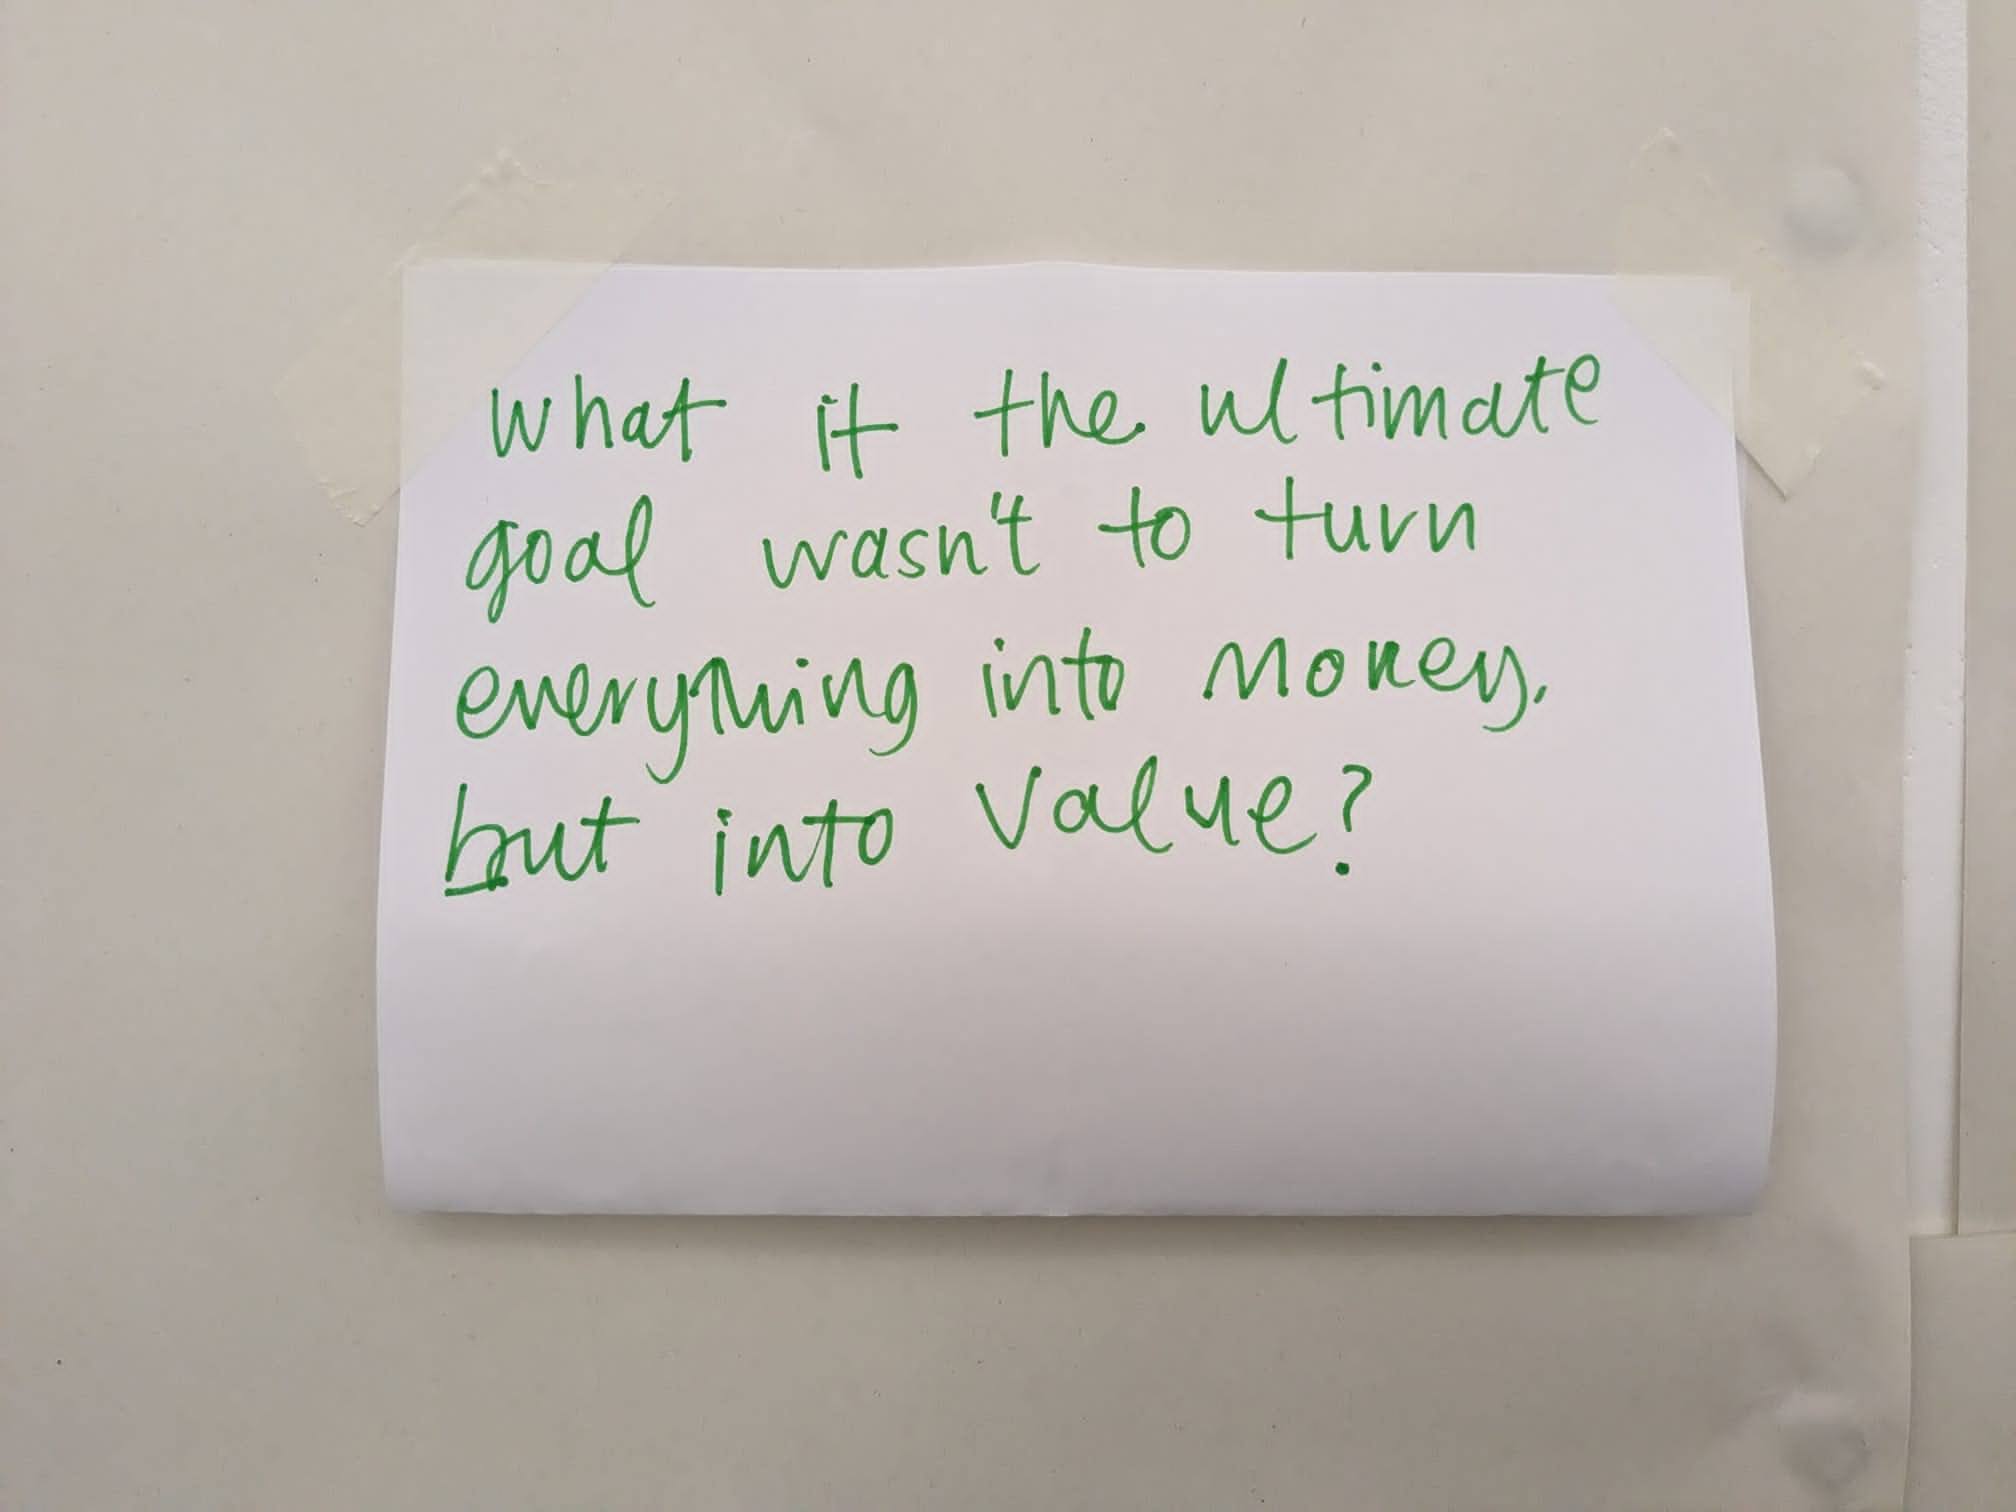 What if the ultimate
goal wasn't to turn
everything into money,
but into value?